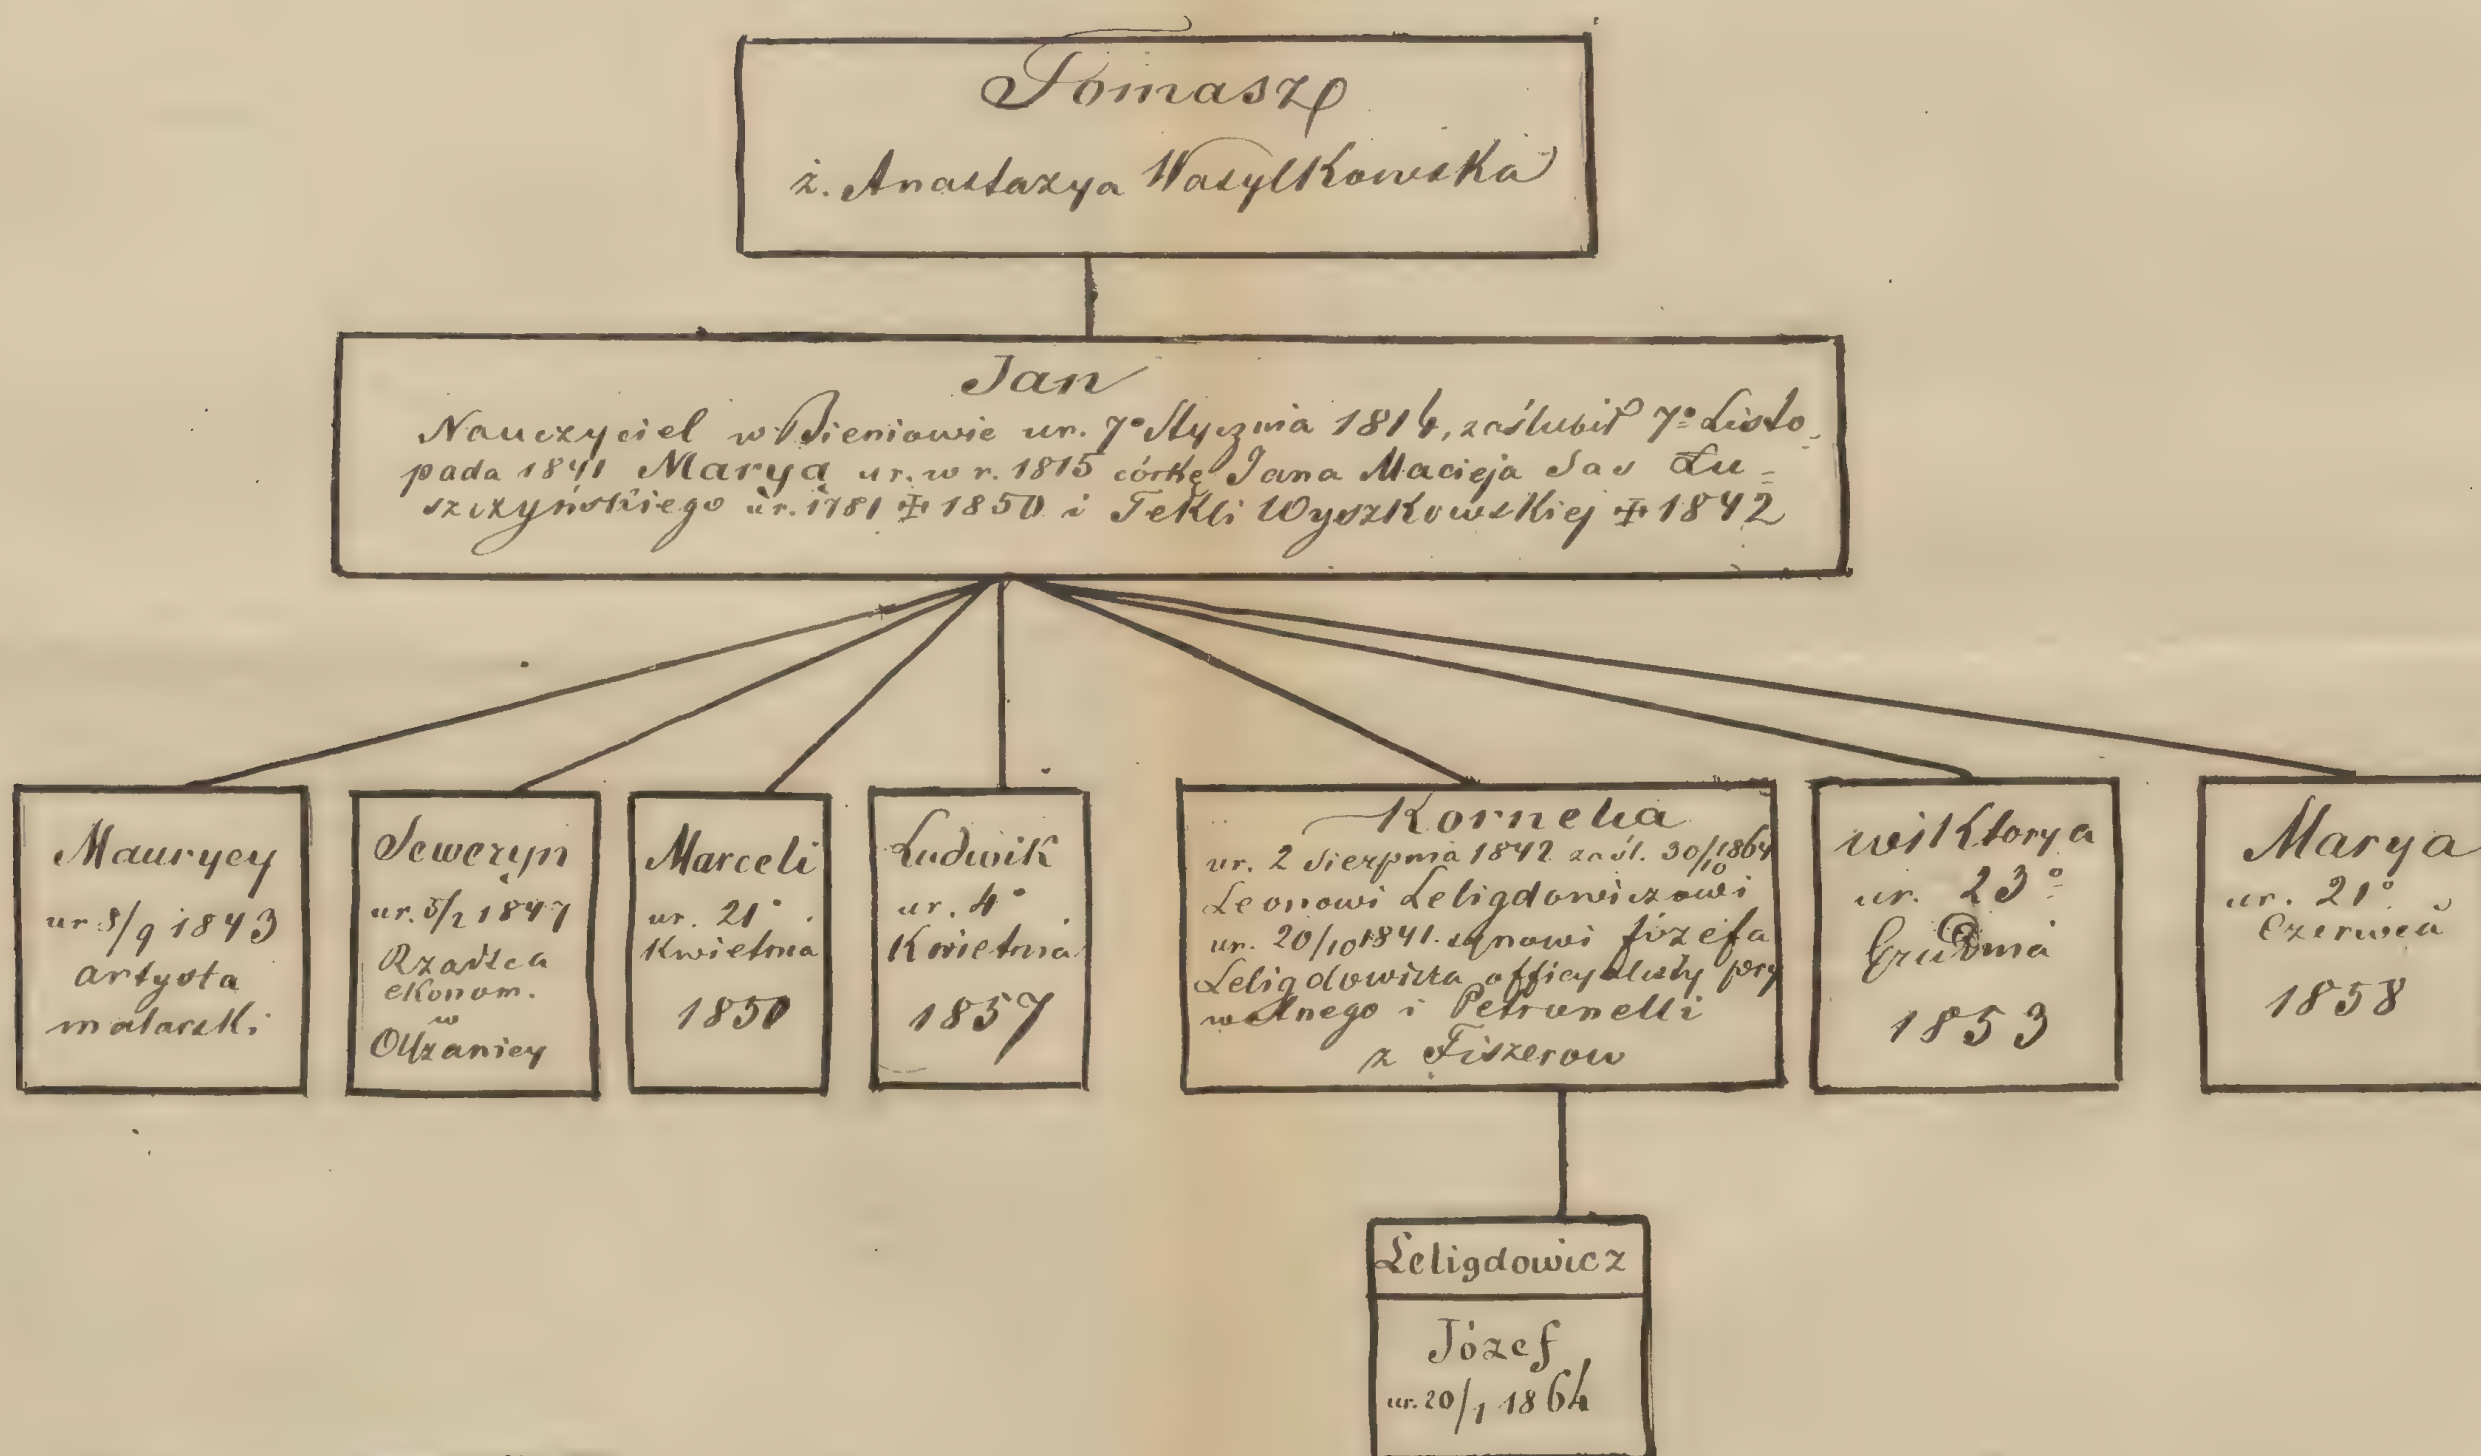 Tomasz
ż. Anastazya Wasylkowska
Jan
Nauczyciel w Bieniowie ur. 7° Stycznia 1814, zaślubił 7° Listo
pada 1841 Maryą ur. w r. 1815 córkę Jana Macieja Sas Łu=
szczyńskiego ur. 1781 ✠ 1850 i Tekli Wyszkowskiej ✠ 1842
Maurycy
ur 8/9 1843
artysta
malarski
Seweryn
ur. 5/2 1847
Rządzca
ekonom.
w
Olszanicy
Marceli
ur. 21°
Kwietnia
1850
Ludwik
ur. 4°
Kwietnia
1857
Kornelia
ur. 2 Sierpnia 1842 zaśl. 30/10 1864
Leonowi Leligdowiczowi
ur. 20/10 1841. synowi Józefa
Leligdowicza officyalisty pry
watnego i Petronelli
z Fiszerow
wiktorya
ur. 23°
Grudnia
1853
Marya
ur. 21°
Czerwca
1858
Leligdowicz
Józef
ur. 20/1 1864